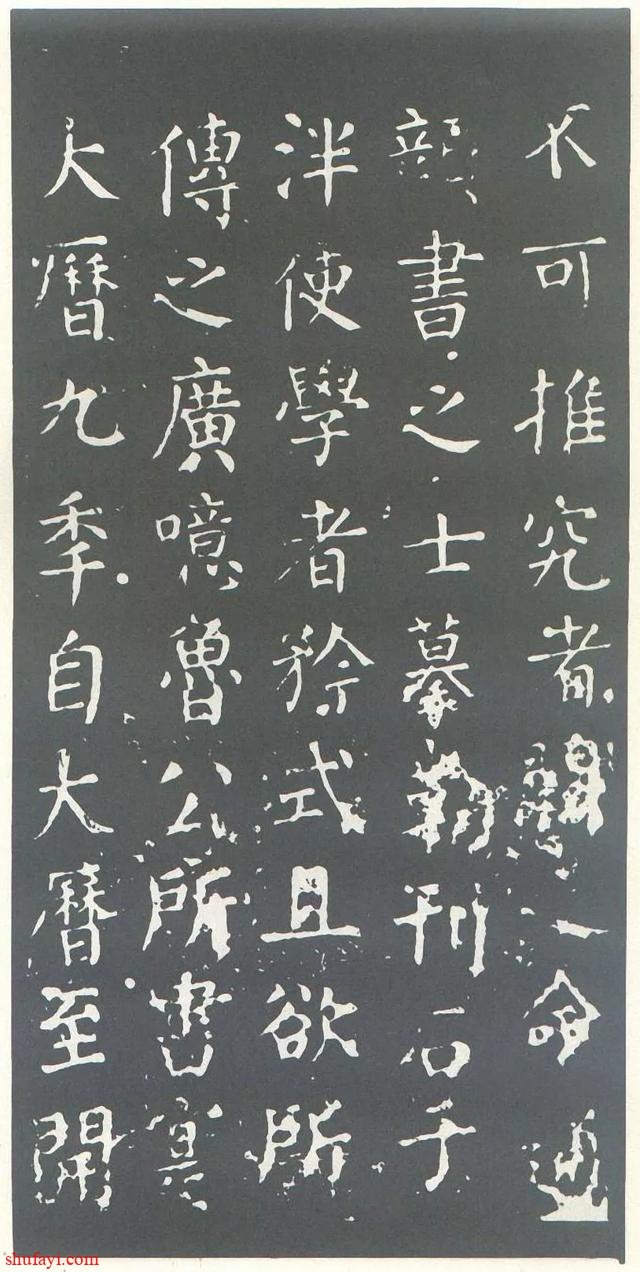 不可推究者謹命通
顏書之士摹勒刊石于
泮使學者矜式且欲所
傳之廣噫魯公所書寔
大曆九季自大曆至開
shufayi.com